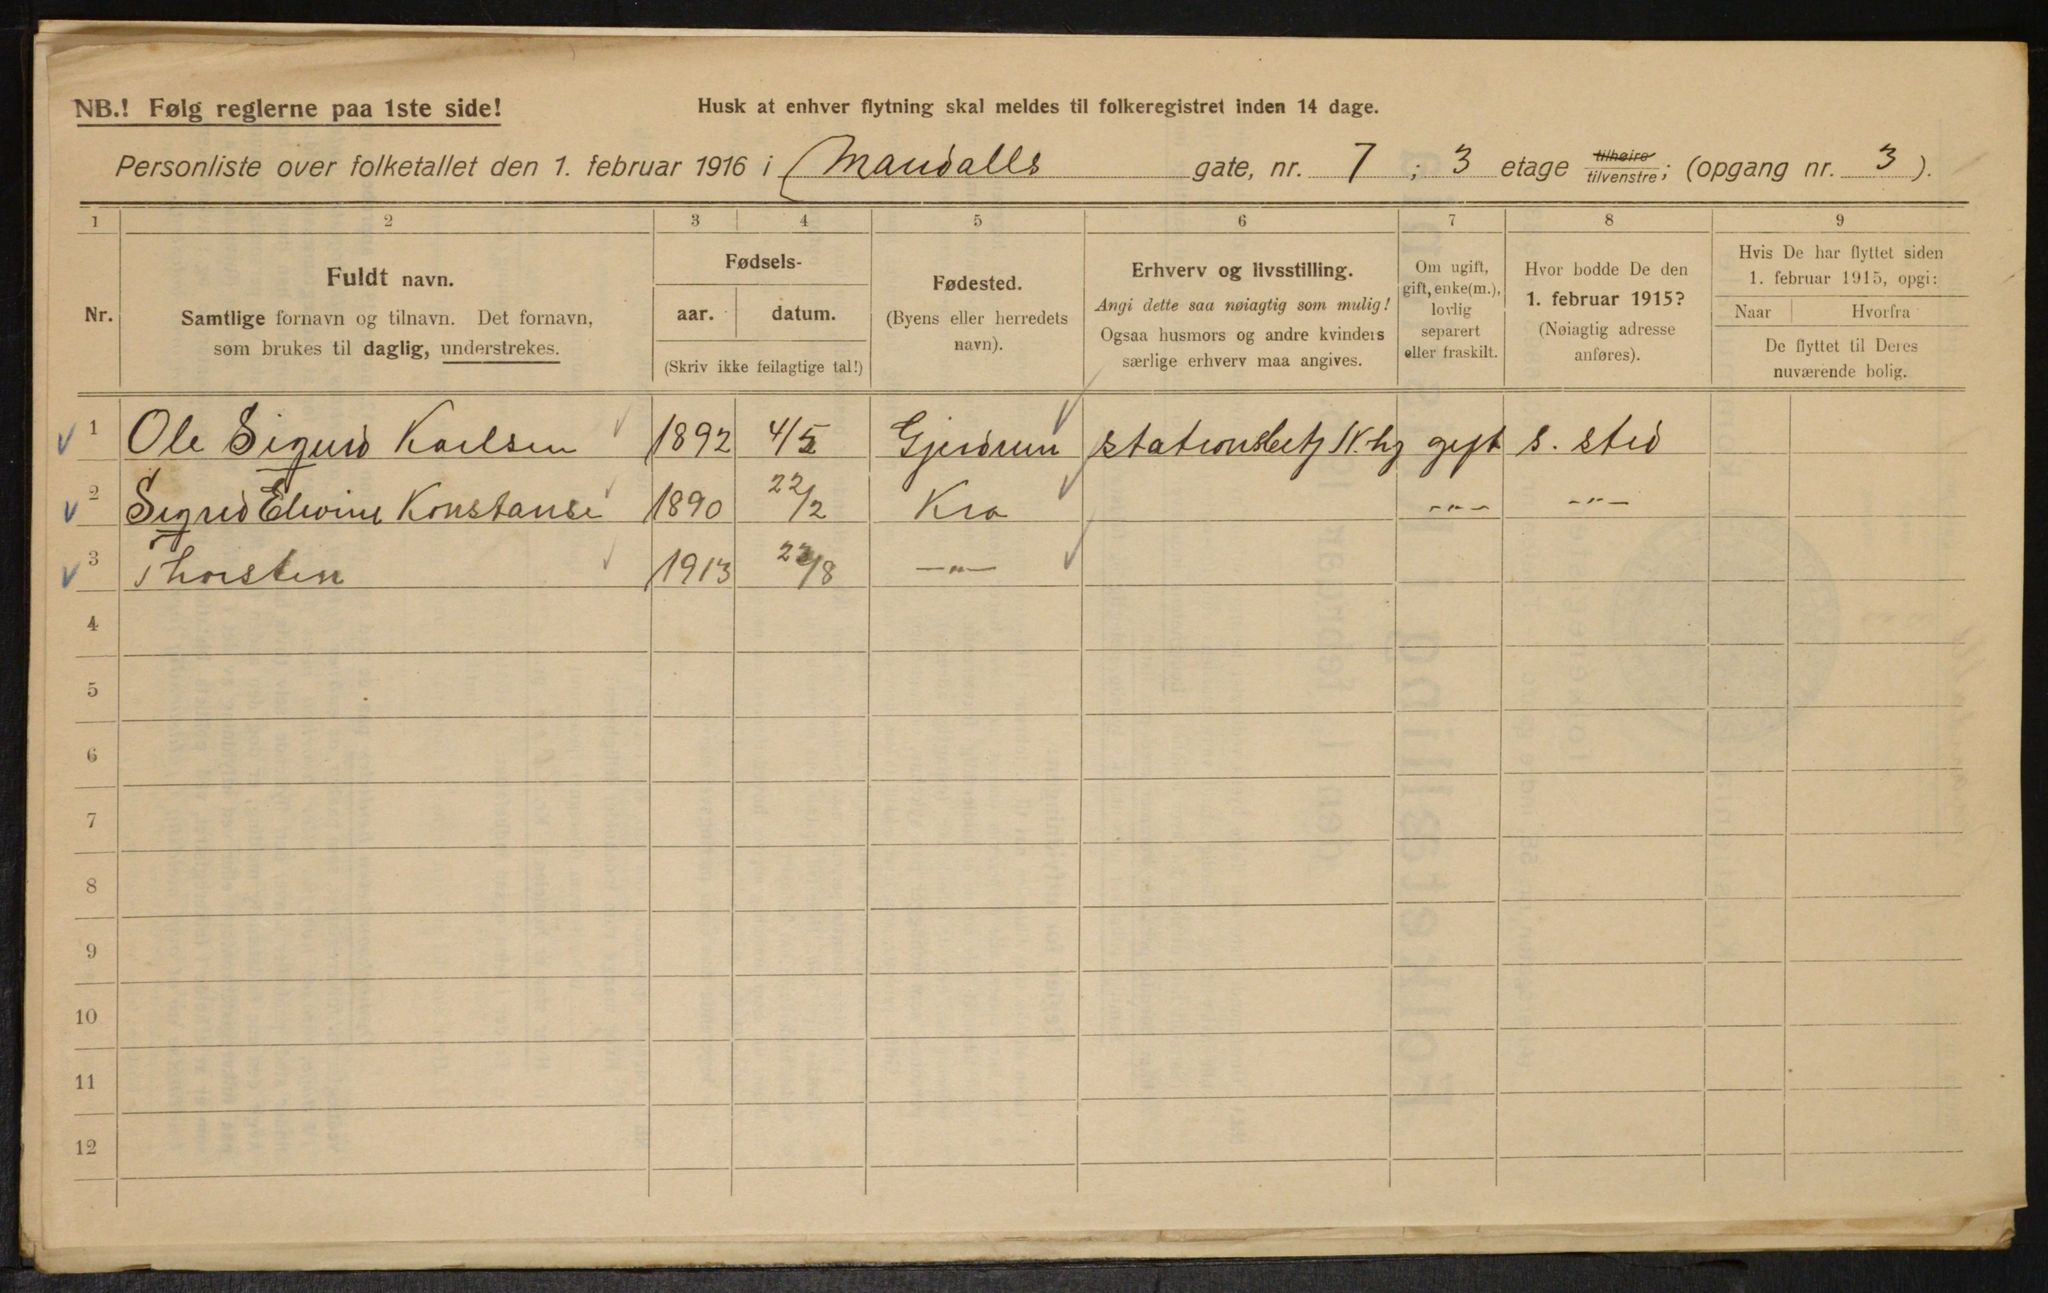 NB.! Følg reglerne paa 1ste side!
Husk at enhver flytning skal meldes til folkeregistret inden 14 dage.
Personliste over folketallet den 1. februar 1916 i Mandalls gate, nr. 7 ; 3 etage tilhøire tilvenstre; (opgang nr. 3 ).
1 2 3 4 5 6 7 8 9
Nr.
Fuldt navn.
Samtlige fornavn og tilnavn. Det fornavn,
som brukes til daglig, understrekes.
Fødsels-
aar. datum.
(Skriv ikke feilagtige tal!)
Fødested.
(Byens eller herredets
navn).
Erhverv og livsstilling.
Angi dette saa nøiagtig som mulig!
Ogsaa husmors og andre kvinders
særlige erhverv maa angives.
Om ugift,
gift, enke(m.),
lovlig
separert
eller fraskilt.
Hvor bodde De den
1. februar 1915?
(Nøiagtig adresse
anføres).
Hvis De har flyttet siden
1. februar 1915, opgi:
Naar Hvorfra
De flyttet til Deres
nuværende bolig.
1 Ole Sigurd Karlsen 1892 4/5 Gjerdrum stationsbetj gift s. sted
2 Sigrid Konstanse 1890 22/2 Kra -"- -"-
3 Thorsten 1913 /8 -"-
4
5
6
7
8
9
10
11
12